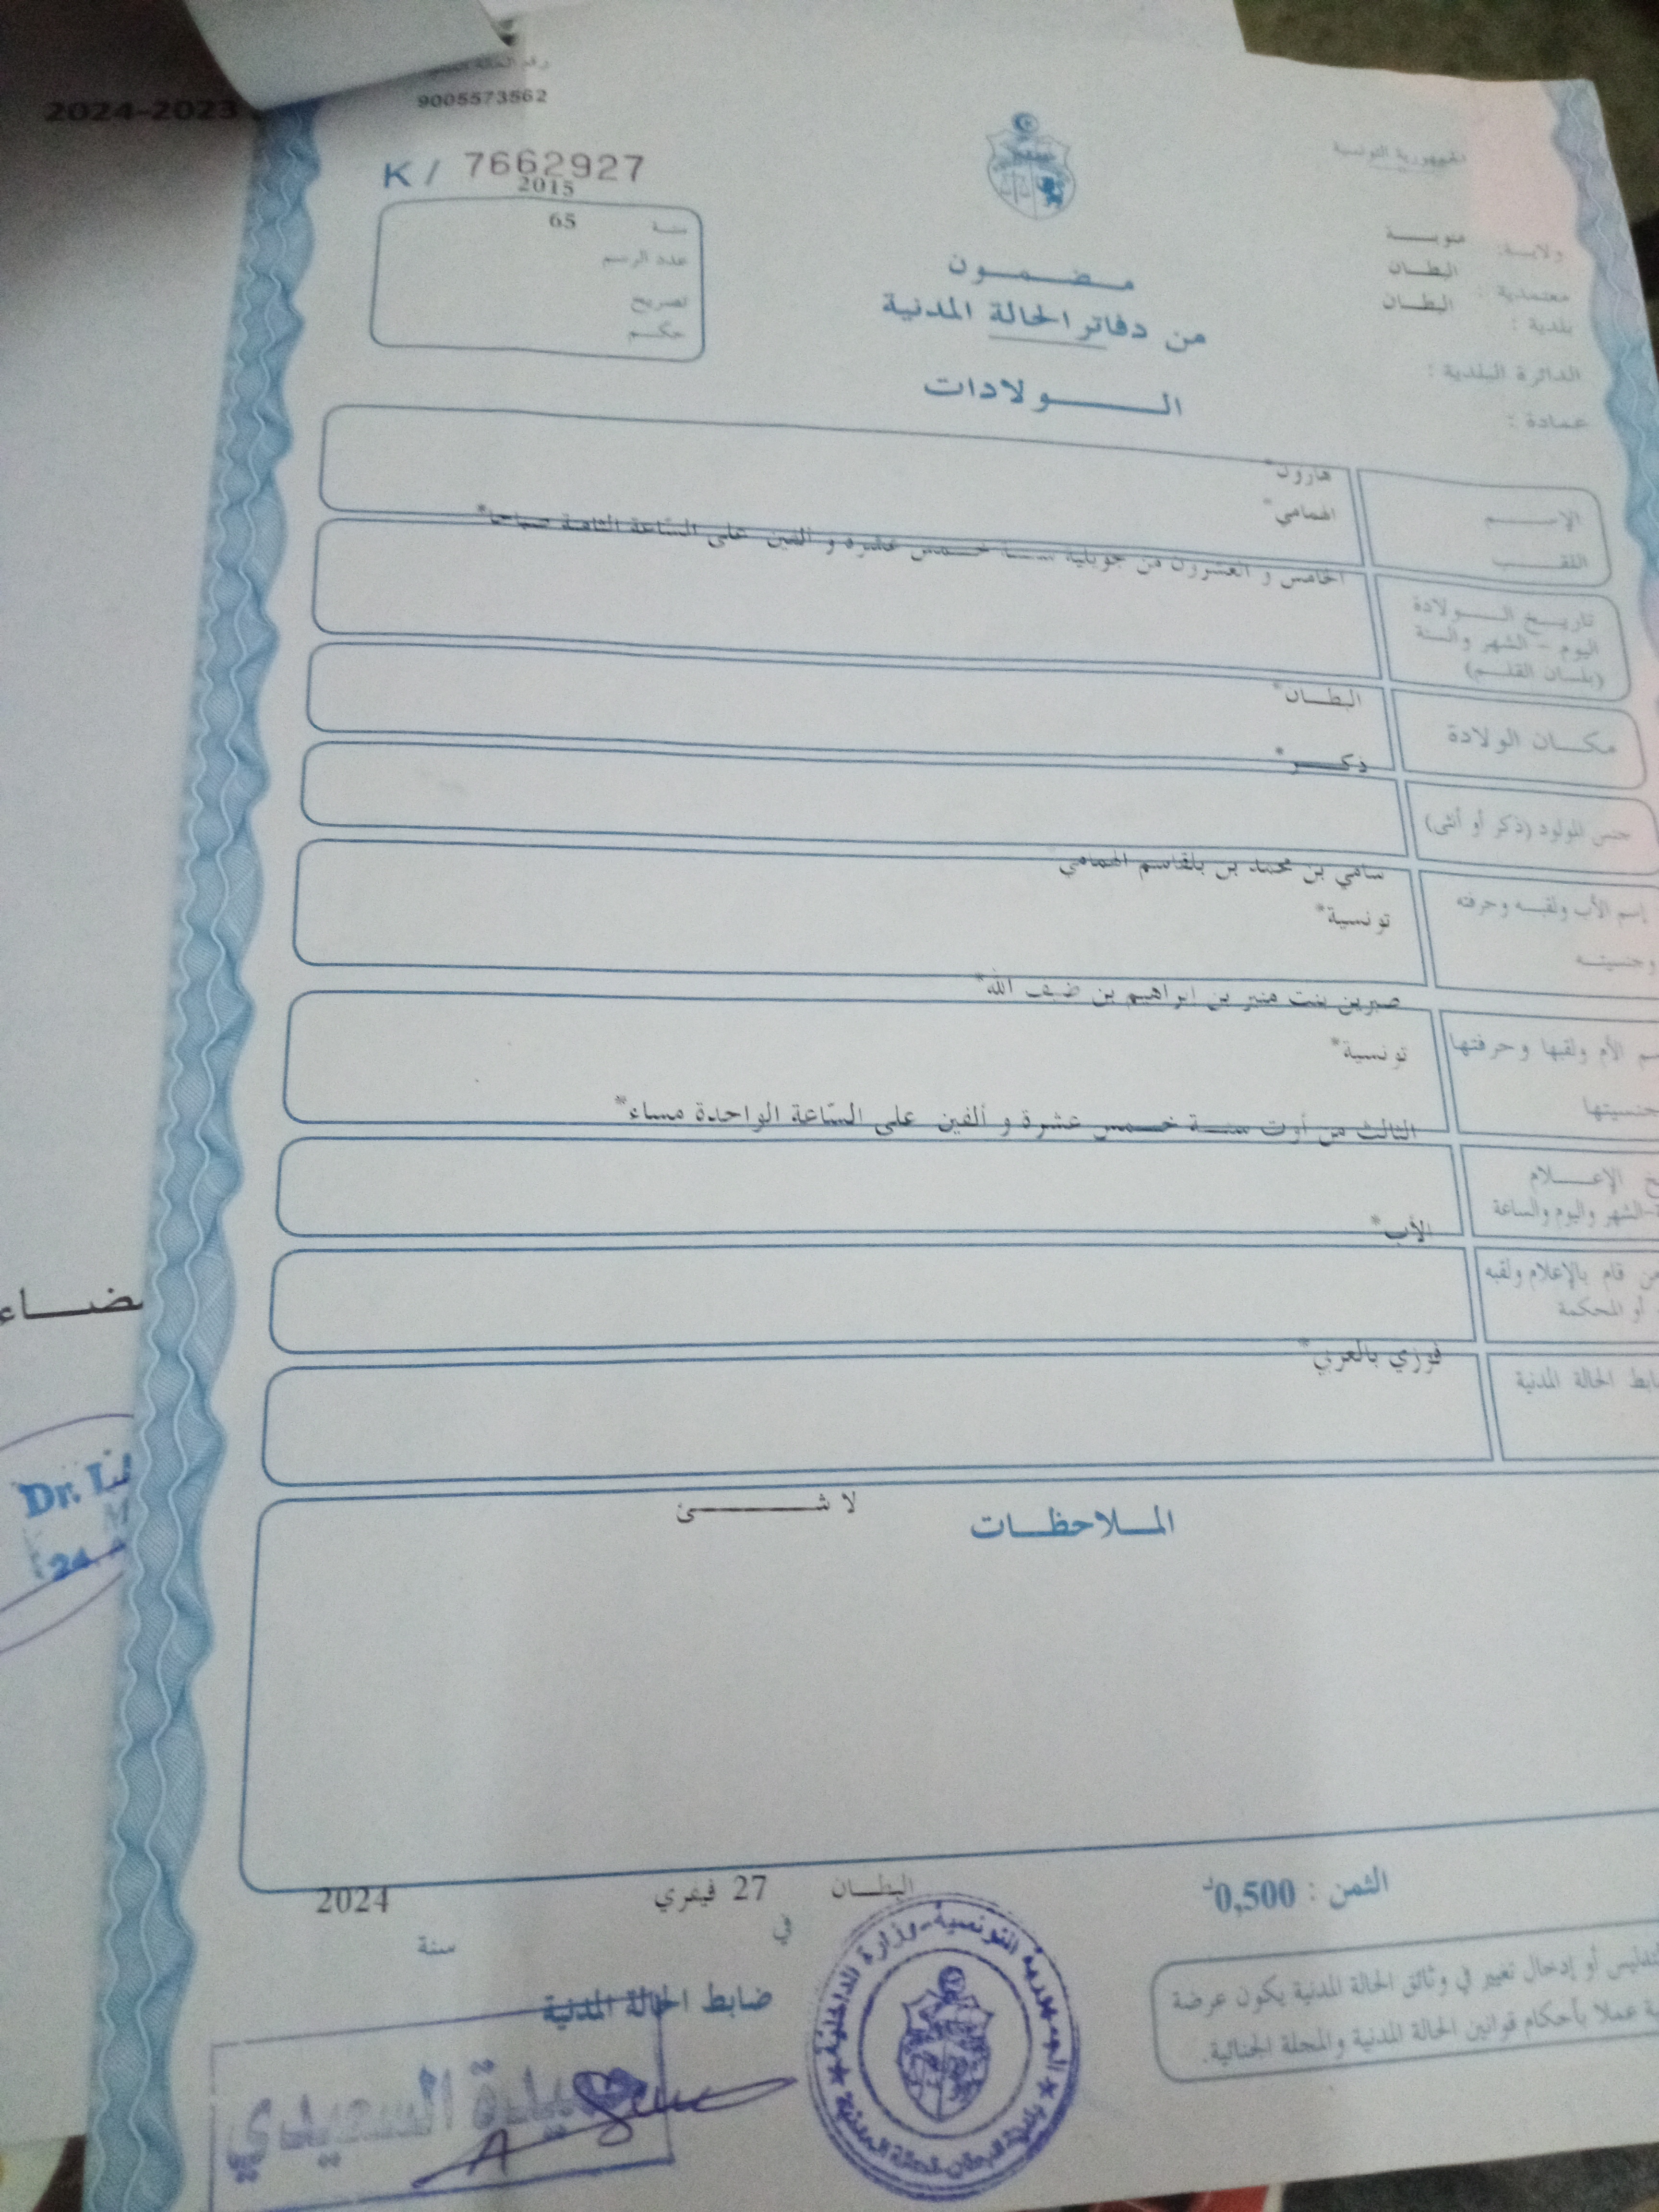 2024-2023
9005573562
الجمهورية التونسية
K / 7662927
2015
سنة
65
عدد الرسم
تصريح
حكم
ولاية: منوبة
معتمدية : البطان
بلدية : البطان
الدائرة البلدية :
عمادة :
مضمون
من دفاتر الحالة المدنية
الولادات
الإسم
هارون*
اللقب
الهمامي*
تاريخ الولادة
اليوم - الشهر والسنة
(بلسان القلم)
الخامس و العشرون من جويلية سنة خمس عشرة و ألفين على السّاعة الثامنة صباحا*
مكان الولادة
البطان*
جنس المولود (ذكر أو أنثى)
ذكر*
إسم الأب ولقبه وحرفته
وجنسيته
سامي بن محمد بن بلقاسم الهمامي
تونسية*
الأم ولقبها وحرفتها
صبرين بنت منير بن ابراهيم بن ضيف الله*
تونسية*
الإعلام
الشهر واليوم والساعة
الثالث من أوت سنة خمس عشرة و ألفين على السّاعة الواحدة مساء*
قام بالإعلام ولقبه
أو المحكمة
الأب*
الحالة المدنية
فوزي بالعربي*
الملاحظات
لا شئ
الثمن : 0,500د
البطان
في
27 فيفري
سنة
2024
ضابط الحالة المدنية
أو إدخال تغيير في وثائق الحالة المدنية يكون عرضة
عملا بأحكام قوانين الحالة المدنية والمجلة الجنائية.
الجمهورية التونسية - وزارة الداخلية
السعيدي
Dr.
24